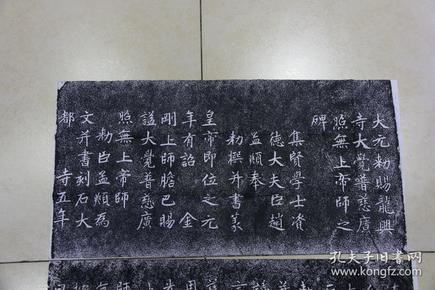 大元勑賜龍興
寺大覺普慈廣
照無上帝師之
碑
集賢學士資
德大夫臣趙
孟頫奉
勑撰并書篆
皇帝即位之元
年有詔金
剛上師膽巴賜
謚大覺普慈廣
照無上帝師
勑臣孟頫為
文并書刻石大
都寺五年
孔夫子旧书网
www.kongfz.com